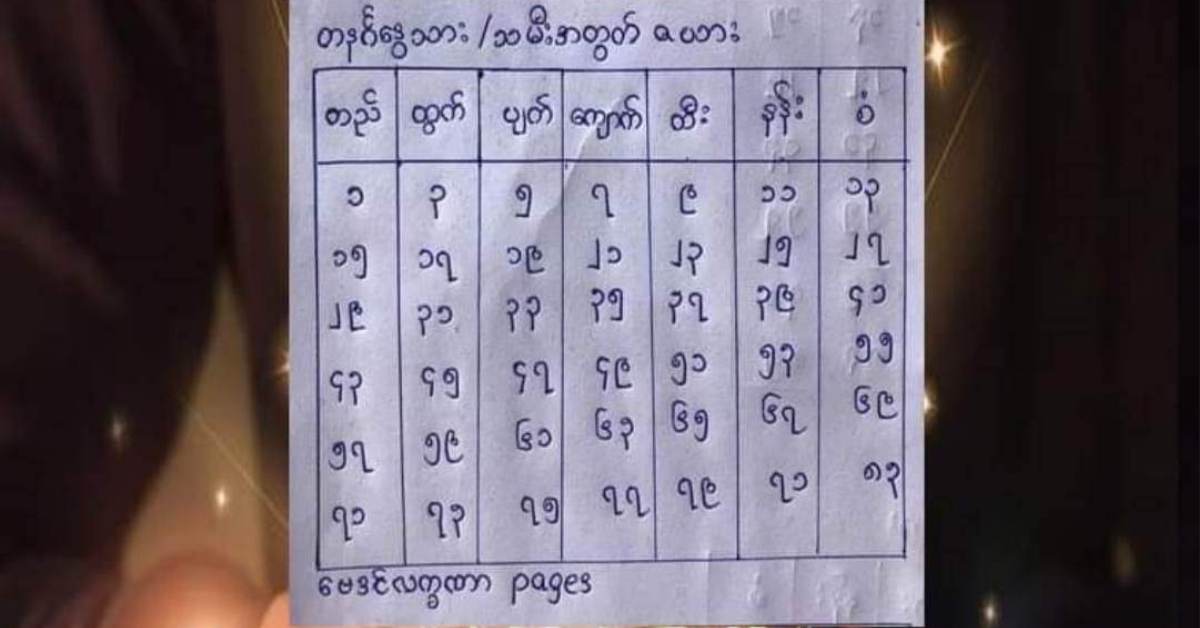 တနင်္ဂနွေသား/သမီးအတွက် ဇယား
တည် ထွက် ပျတ် ကျောက် ထီး နန်း စံ
၁ ၃ ၅ ၇ ၉ ၁၁ ၁၃
၁၅ ၁၇ ၁၉ ၂၁ ၂၃ ၂၅ ၂၇
၂၉ ၃၁ ၃၃ ၃၅ ၃၇ ၃၉ ၄၁
၄၃ ၄၅ ၄၇ ၄၉ ၅၁ ၅၃ ၅၅
၅၇ ၅၉ ၆၁ ၆၃ ၆၅ ၆၇ ၆၉
၇၁ ၇၃ ၇၅ ၇၇ ၇၉ ၇၁ ၈၃
ဗေဒင်လက္ခဏာ pages